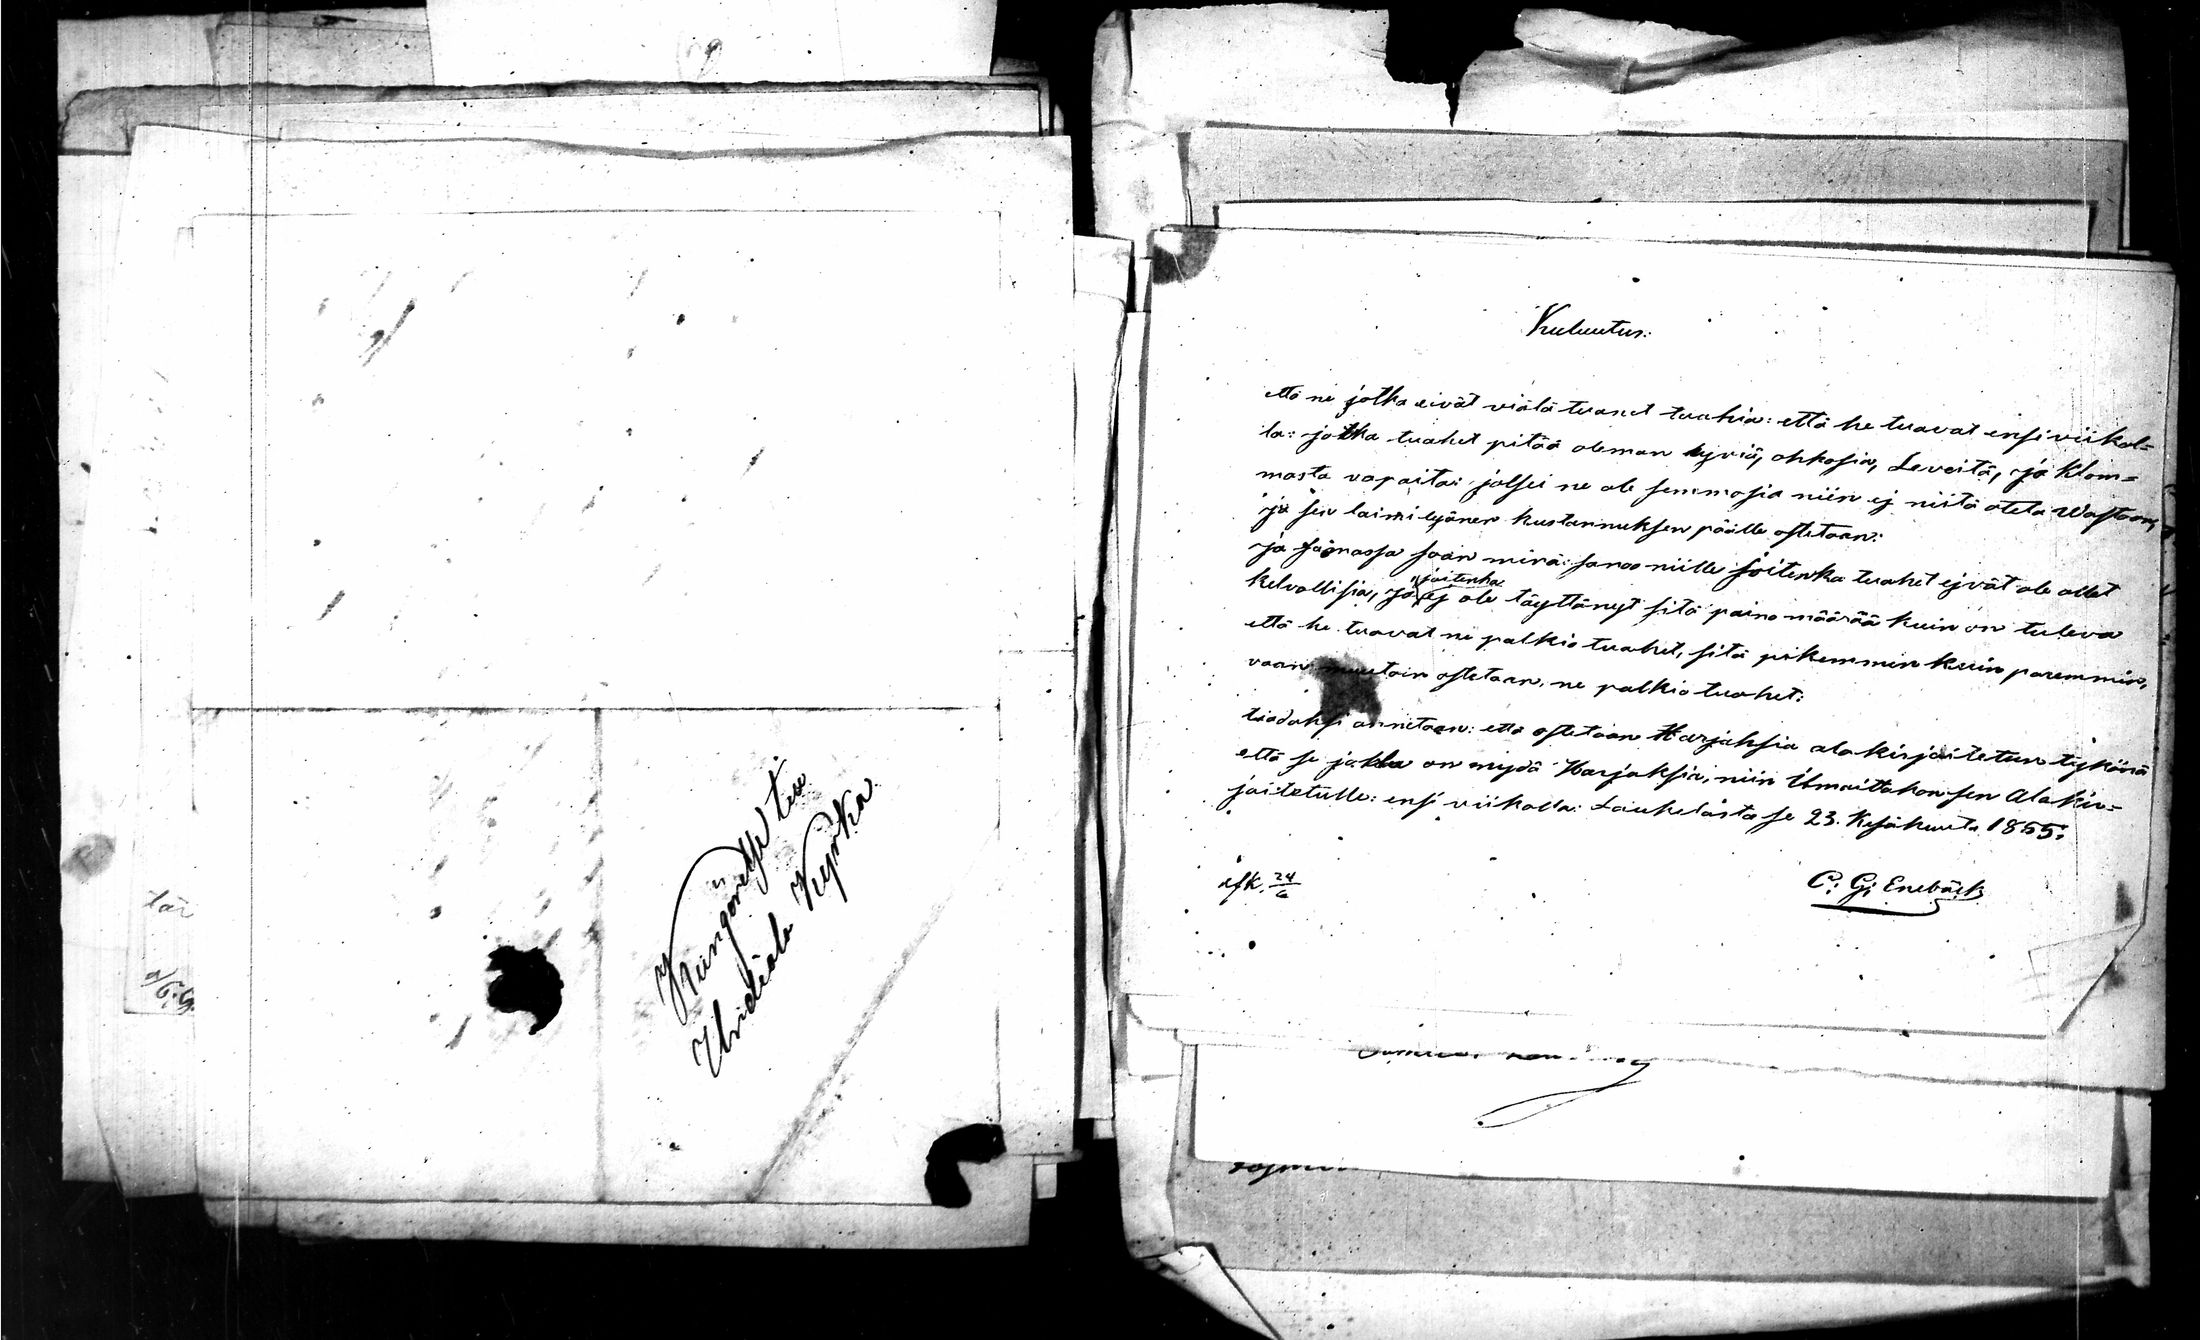 Kungörelse till
Urdiala Kyrka
tär
a/ C: G.
Kuluutus:
että ne jotka eivät viälä tuonet tuahia: että he tuavat ensi viikol=
la: jotka tuahet pitää oleman hyviä, ohkosia, Leveitä, ja klom=
mosta vapaita: jolsei ne ole semmosia niin ej niitä oteta Wastaan,
ja sen laimilyönen kustannuksen päälle ostetaan:
ja samassa saan minä: sanoo niille joitenka tuahet ejvät ole ollet
kelvollisia, ja joitenka ej ole täyttänyt sitä paino määrää kuin on tuleva
että he tuavat ne palkio tuahet, sitä pikemmin kuin paremmin,
vaan muutoin ostetaan ne palkio tuahet:
tiadoksi annetaan: että ostetaan Harjaksia alakirjoitetun tykönä
että se jolla on myydä Harjaksia, niin ilmoittakon sen Alakir=
joitetulle: ensi viikolla: Laukelasta se 23. Kesäkuuta 1855:
C: G: Enebäck
ufk. 24/6